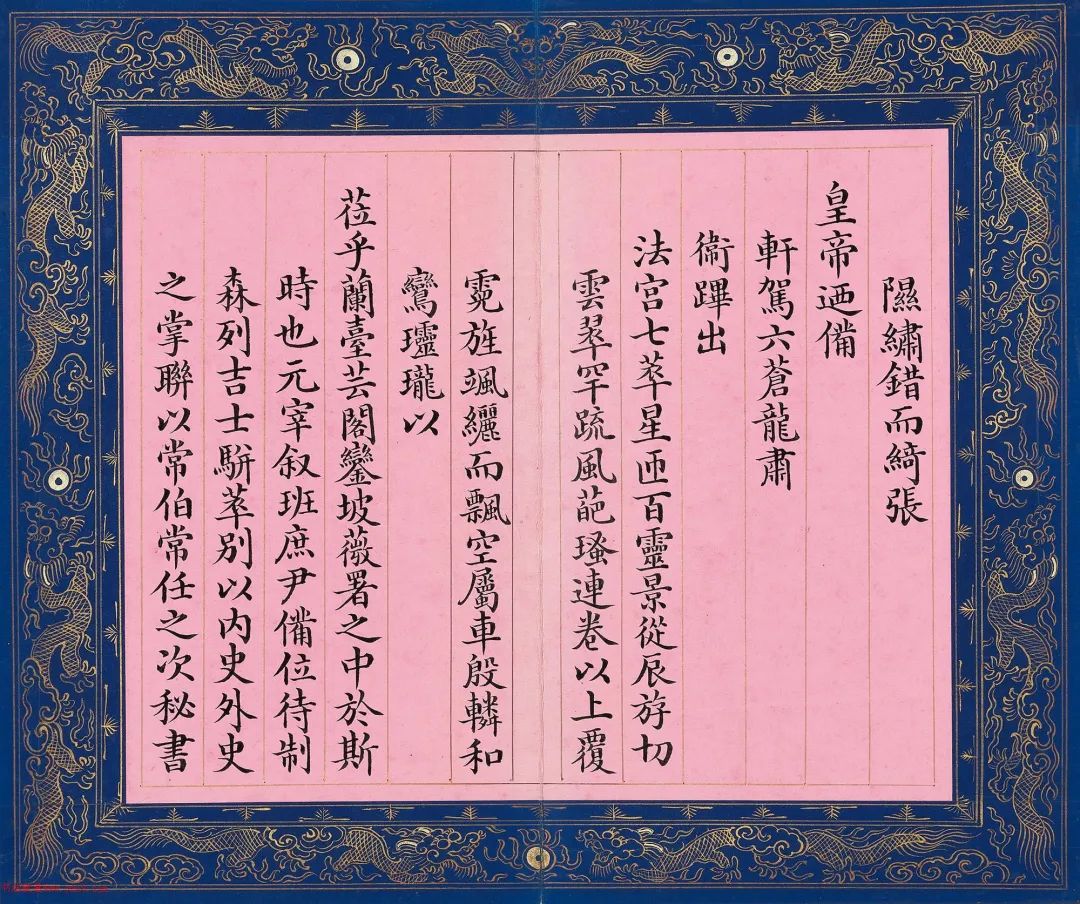 隰繡錯而綺張
皇帝迺備
軒駕六蒼龍肅
衞蹕出
法宮七萃星匝百靈景從辰斿切
雲翠罕疏風葩瑵連卷以上覆
霓旌颯纚而飄空屬車殷轔和
鸞瓏以
莅乎蘭臺芸閣鑾坡薇署之中於斯
時也元宰叙班庶尹備位待制
森列吉士駢萃別以內史外史
之掌聯以常伯常任之次秘書